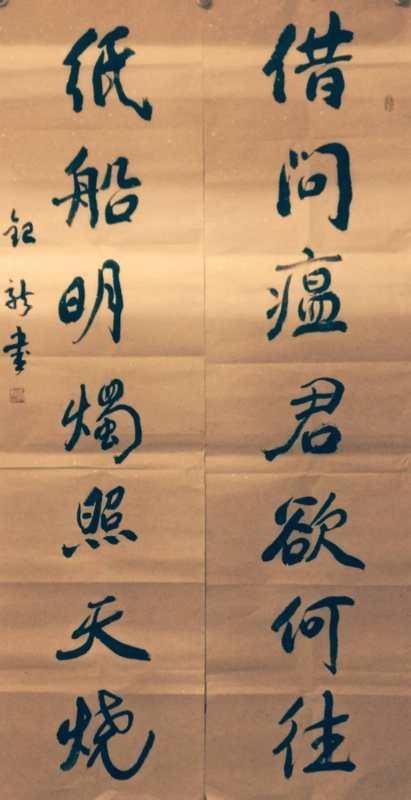 借问瘟君欲何往
纸船明烛照天烧
龙书